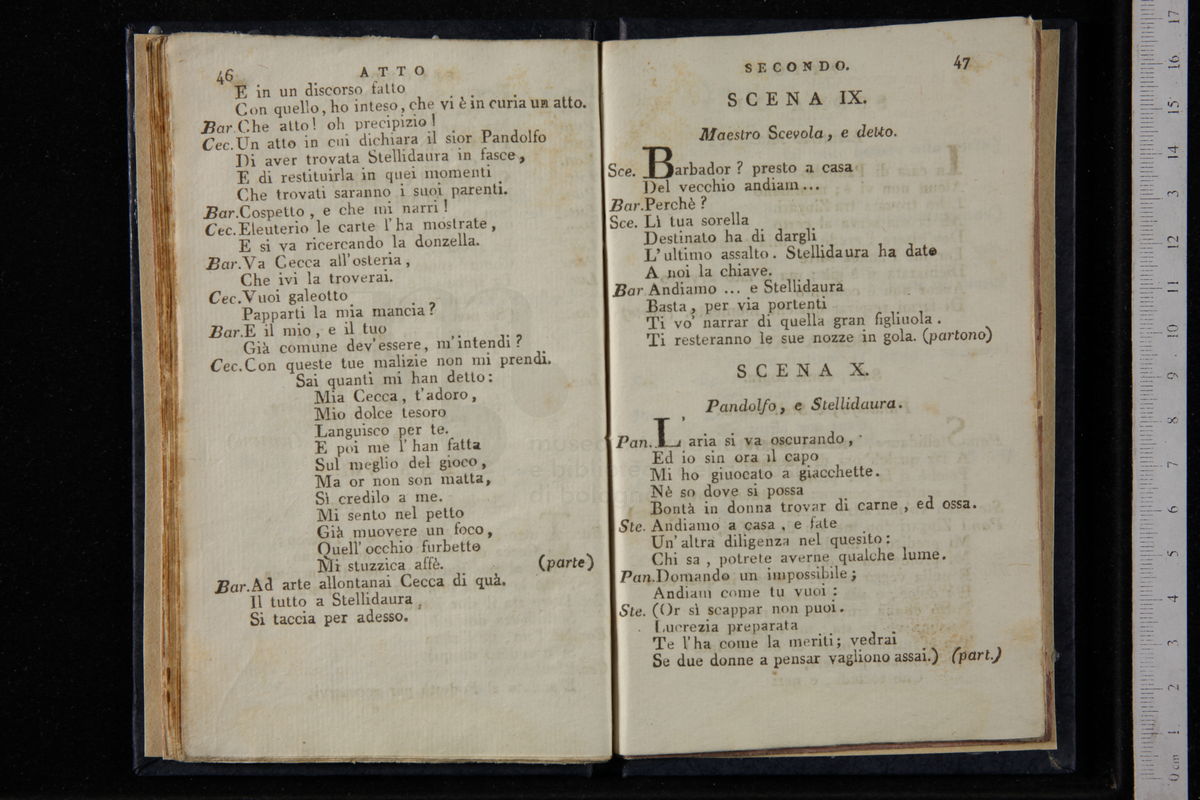 46
ATTO
E in un discorso fatto
Con quello, ho inteso, che vi è in curia un atto.
Bar. Che atto! oh precipizio!
Cec. Un atto in cui dichiara il sior Pandolfo
Di aver trovata Stellidaura in fasce,
E di restituirla in quei momenti
Che trovati saranno i suoi parenti.
Bar. Cospetto, e che mi narri!
Cec. Eleuterio le carte l'ha mostrate,
E si va ricercando la donzella.
Bar. Va Cecca all'osteria,
Che ivi la troverai.
Cec. Vuoi galeotto
Papparti la mia mancia?
Bar. E il mio, e il tuo
Già comune dev'essere, m'intendi?
Cec. Con queste tue malizie non mi prendi.
Sai quanti mi han detto:
Mia Cecca, t'adoro,
Mio dolce tesoro
Languisco per te.
E poi me l'han fatta
Sul meglio del gioco,
Ma or non son matta,
Sì credilo a me.
Mi sento nel petto
Già muovere un foco,
Quell'occhio furbetto
Mi stuzzica affè. (parte)
Bar. Ad arte allontanai Cecca di quà.
Il tutto a Stellidaura
Si taccia per adesso.
SECONDO.
47
SCENA IX.
Maestro Scevola, e detto.
Sce. Barbador? presto a casa
Del vecchio andiam...
Bar. Perchè?
Sce. Lì tua sorella
Destinato ha di dargli
L'ultimo assalto. Stellidaura ha dato
A noi la chiave.
Bar Andiamo ... e Stellidaura
Basta, per via portenti
Ti vo' narrar di quella gran figliuola.
Ti resteranno le sue nozze in gola. (partono)
SCENA X.
Pandolfo, e Stellidaura.
Pan. L'aria si va oscurando,
Ed io sin ora il capo
Mi ho giuocato a giacchette.
Nè so dove si possa
Bontà in donna trovar di carne, ed ossa.
Ste. Andiamo a casa, e fate
Un'altra diligenza nel quesito:
Chi sa, potrete averne qualche lume.
Pan. Domando un impossibile;
Andiam come tu vuoi:
Ste. (Or sì scappar non puoi.
Lucrezia preparata
Te l'ha come la meriti; vedrai
Se due donne a pensar vagliono assai.) (part.)